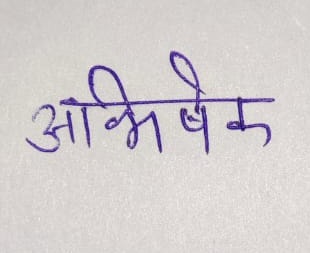 अभिषेक